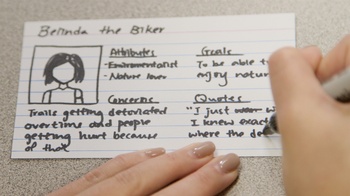 Belinda the Biker
Attributes
- Environmentalist
- Nature lover
Goals
To be able t
enjoy natur
Concerns
Trails getting deteriorated
overtime and people
getting hurt because
of that
Quotes
"I just w
I knew exact
where the de